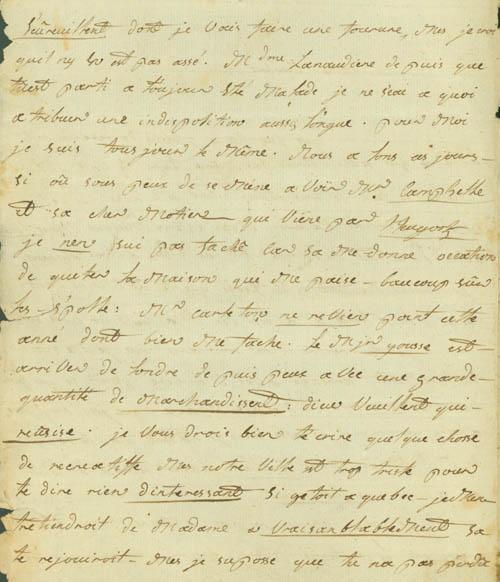 dont je vais faire une Mes je croi
quil ny en est pas assé. M dme Lanaudiere de puis que
tuest parti a toujour été Malade je ne scai a quoi
a tribuer une indisposition aussi longue. pour Moi
je suis tousjour le Même. Nous a tons
si ou sous peux de se Méne a Voir Mr. Campbelle
et sa cher Motier qui Viene par Neuyork
je nen sui pas faché car sa Me donne occation
de quiter la Maison qui Me paise beaucoup sur
les Epolle: Mr carleton ne revien point cette
anné dont bien Me fache. Le Mr yousse est
arriver de londre de puis peux a Vec une grande
quantité de Marchandissent: dieu Veuillent qui
reusise. je Vous drois bien te crire quelque chose
de recreatiffe Mes notre Ville est trop triste pour
te dire rien dinteressant Si getoit a quebec je Men
tretiendroit de Madame a Vraisanblablement Sa
te rejouiroit Mes je supposse que tu na pas perdu